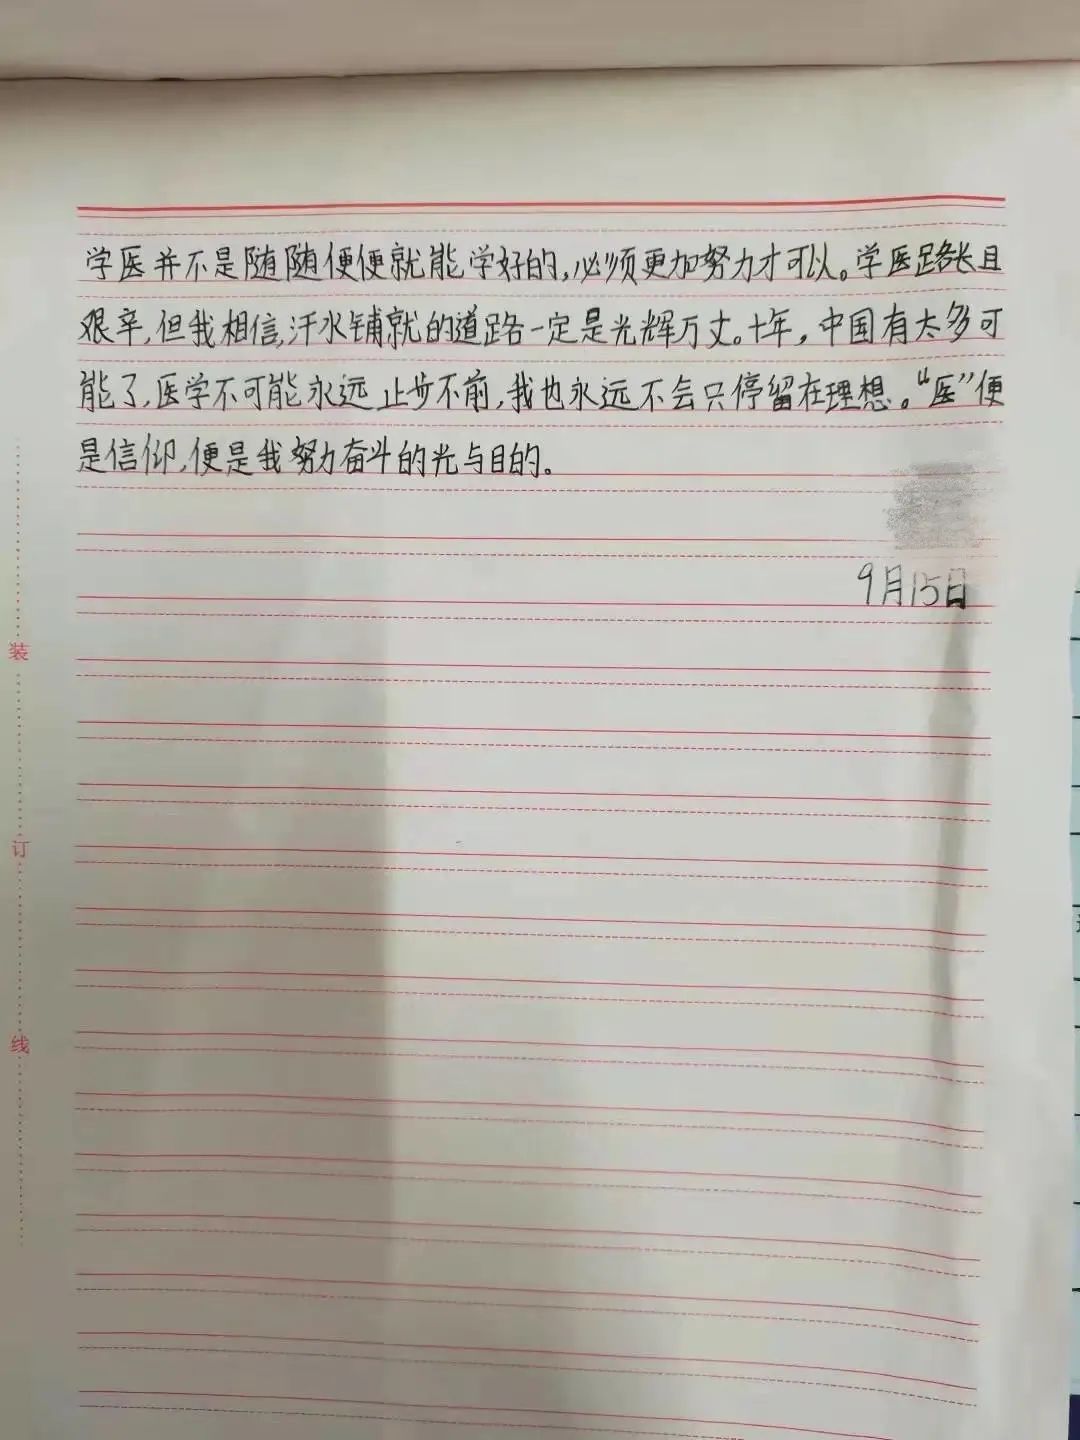 学医并不是随随便便就能学好的,必须更加努力才可以。学医路长且
艰辛,但我相信,汗水铺就的道路一定是光辉万丈。十年,中国有太多可
能了,医学不可能永远止步不前,我也永远不会只停留在理想。“医”便
是信仰,便是我努力奋斗的光与目的。
9月15日
装
订
线